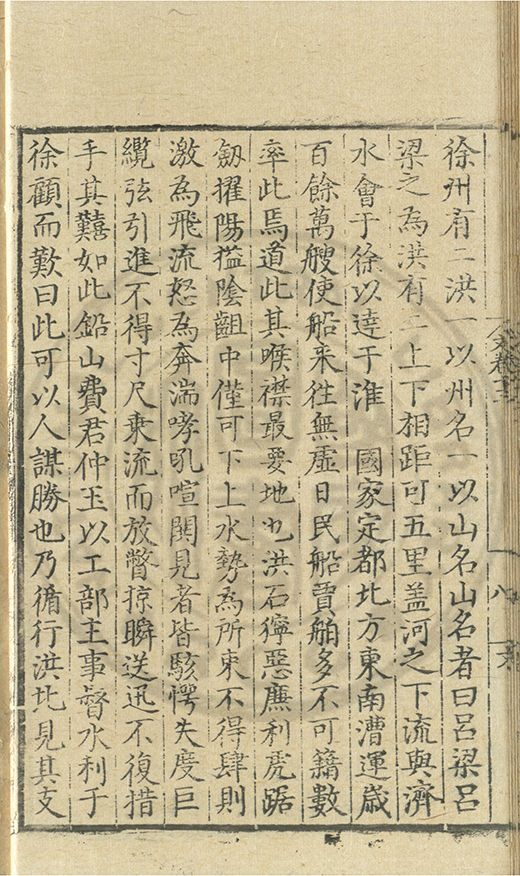 徐州有二洪一以州名一以山名山名者曰呂梁呂
梁之為洪有二上下相距可五里盖河之下流與濟
水會于徐以達于淮　國家定都北方東南漕運歲
百餘萬艘使船来往無虛日民船賈舶多不可籍數
率此焉道此其喉襟最要地也洪石獰惡廉利虎踞
劔擢陽嵠陰齟中僅可下上水勢為所束不得肆則
激為飛流怒為奔湍哮吼喧閧見者皆駭愕失度巨
纜弦引進不得寸尺乗流而放瞥掠瞬送迅不復措
手其囏如此鉛山費君仲玉以工部主事督水利于
徐顧而歎曰此可以人謀勝也乃循行洪圵見其支